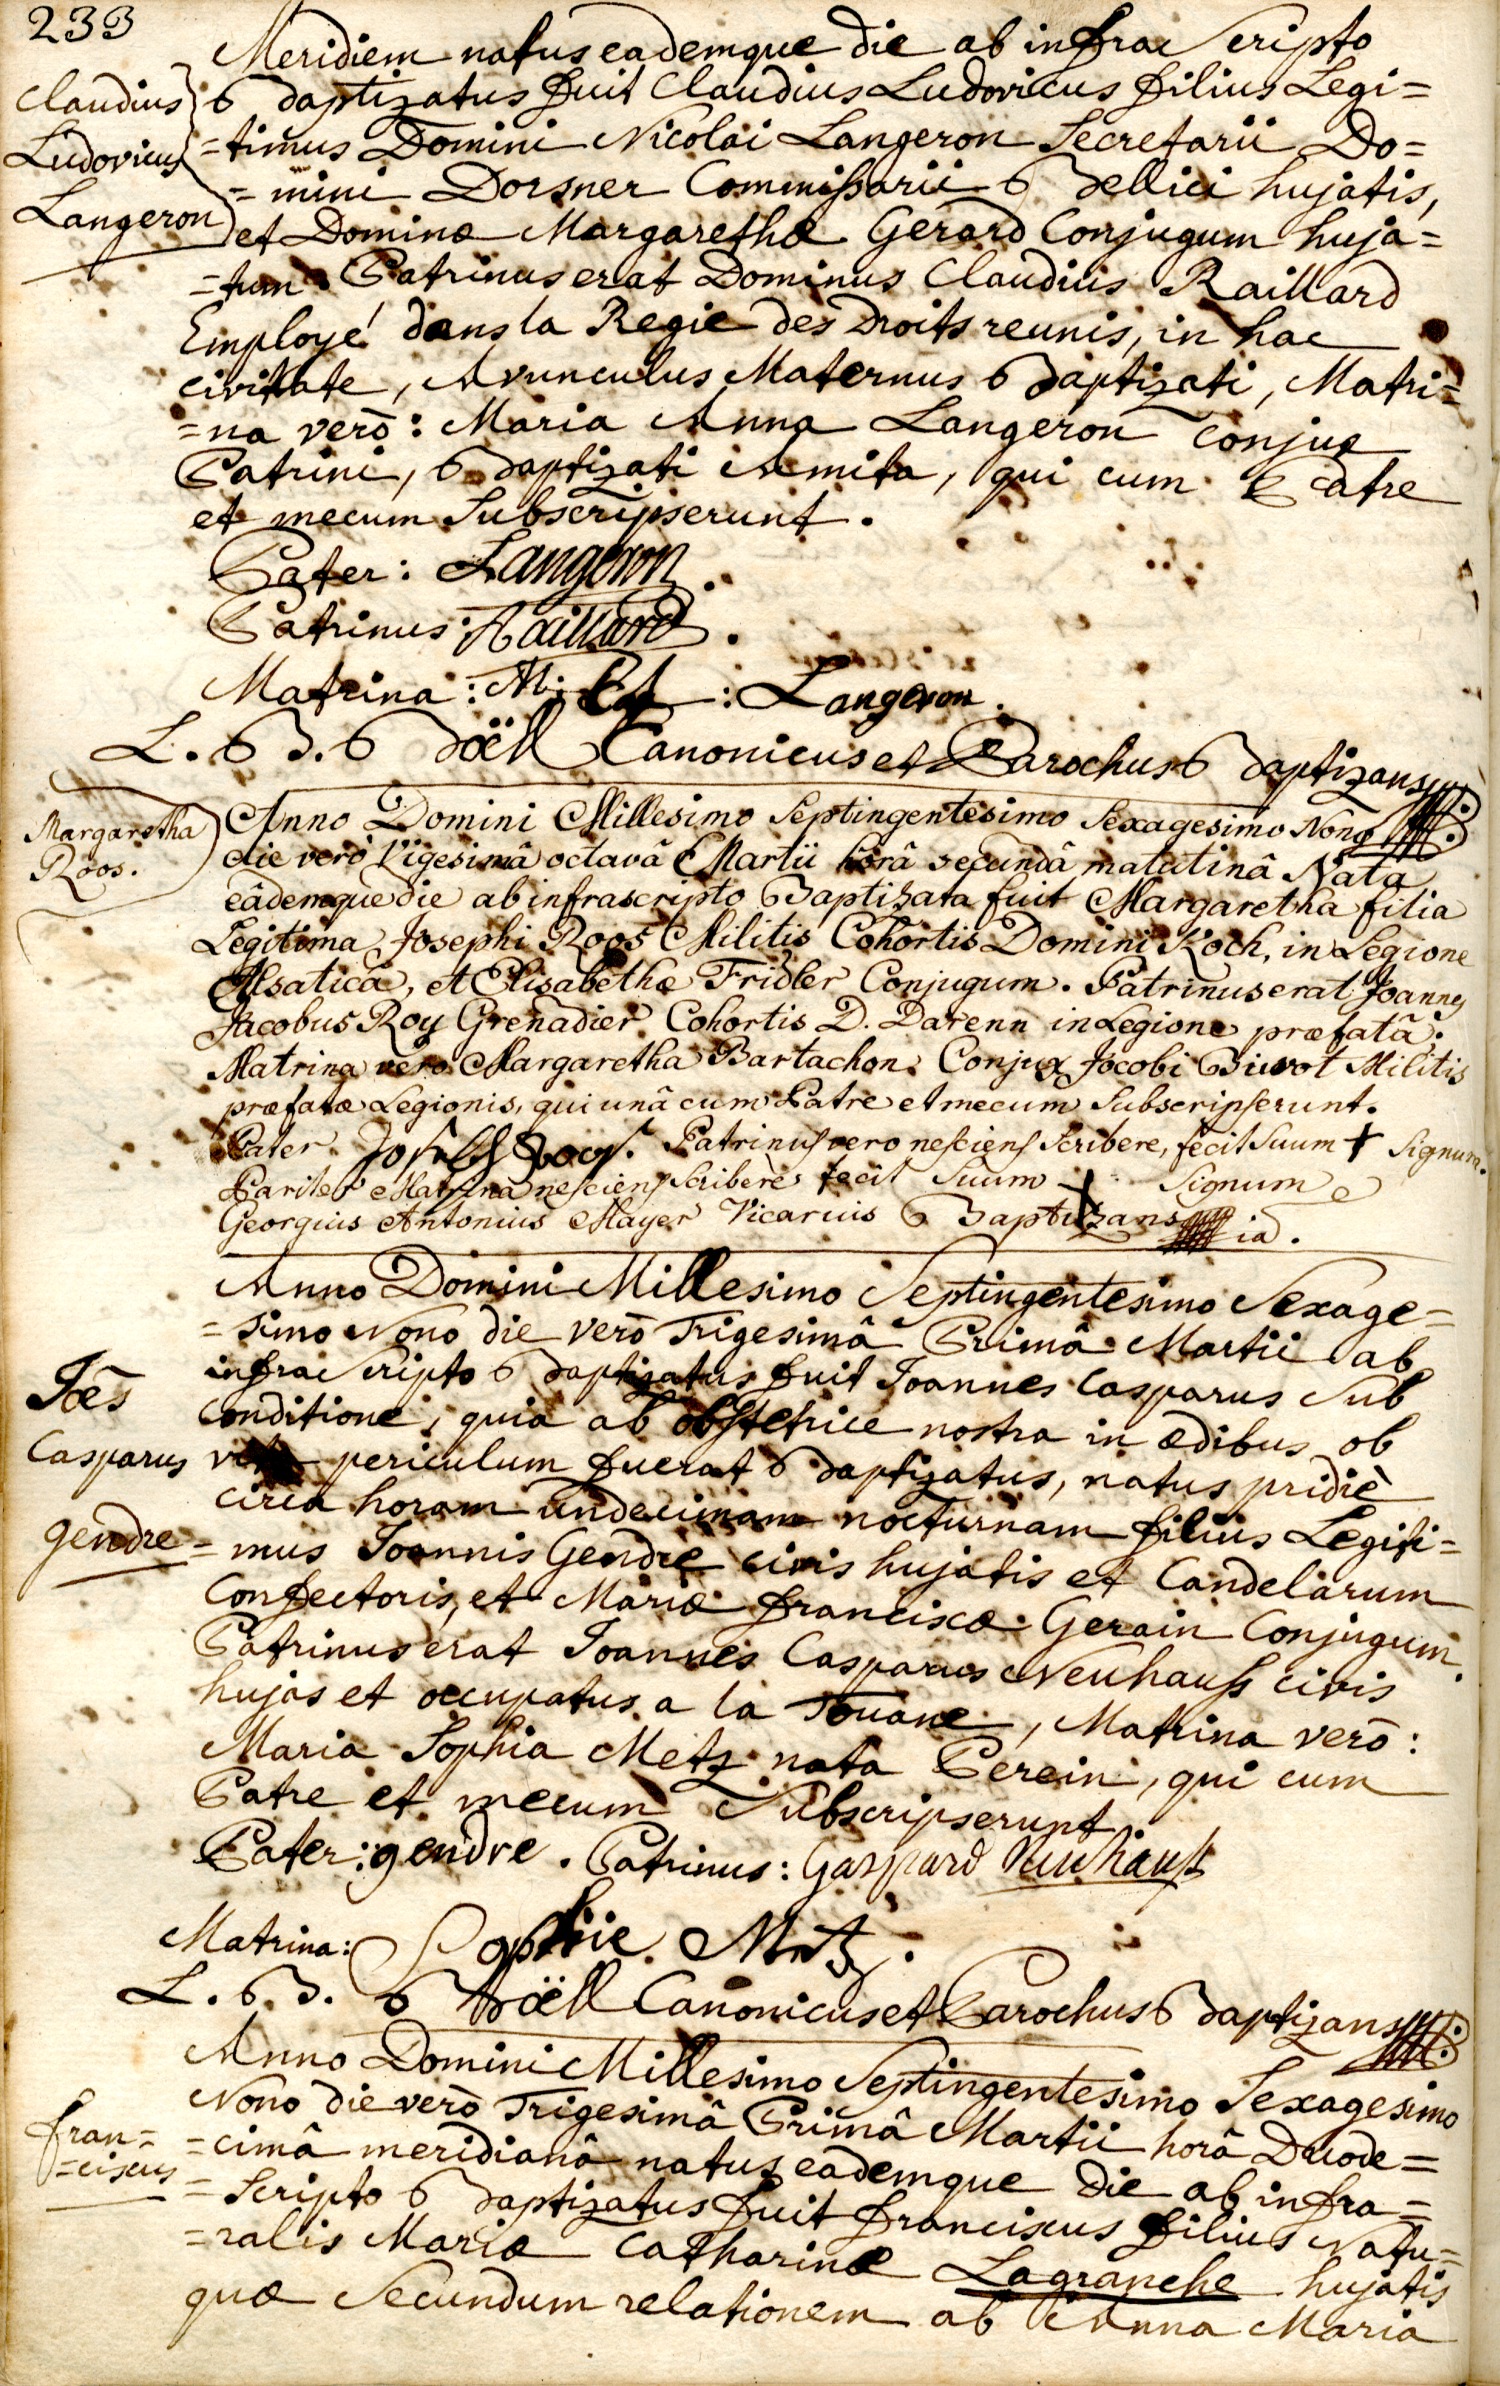 233
Meridiem natus eademque die ab infra Scripto
Claudius
Ludovicus
Langeron
Baptizatus fuit Claudius Ludovicus filius Legi=
=timus Domini Nicolai Langeron Secretarii Do=
=mini Dorsner Commissarii Bellici hujatis,
et Dominæ Margarethæ Gerard Conjugum huja=
=tum. Patrinus erat Dominus Claudius Raillard
Employé dans la Regie des Droits reunis, in hac
civitate, Avunculus Maternus Baptizati, Matri=
=na verò: Maria Anna Langeron conjux
Patrini, Baptizati Amita, qui cum Patre
et mecum Subscripserunt.
Pater: Langeron
Patrinus: Raillard.
Matrina: M: : Langeron.
L. B. Böell Canonicus et Parochus Baptizans
Margaretha
Roos.
Anno Domini Millesimo Septingentesimo Sexagesimo Nono
die verò Vigesimâ octavâ Martii horâ secundâ matutinâ Nata
eâdemque die ab infrascripto Baptizata fuit Margaretha filia
Legitima Josephi Roos Militis Cohortis Domini Koch, in Legione
Alsaticâ, et Elisabethæ Fridler Conjugum. Patrinus erat Joannes
Jacobus Roy Grenadier Cohortis D. Darenn in Legione præfatâ.
Matrina vero Margaretha Bartachon Conjux Jacobi Biwot Militis
præfatæ Legionis, qui unâ cum Patre et mecum Subscripserunt.
Pater Joseph Roos. Patrinus vero nesciens Scribere, fecit Suum + Signum.
Pariter Matrina nesciens Scribere fecit Suum + Signum
Georgius Antonius Mayer Vicarius Baptizans ia.
Joës
Casparus
gendre
Anno Domini Millesimo Septingentesimo Sexage=
=simo Nono die verò Trigesimâ Primâ Martii ab
infra Scripto Baptizatus fuit Joannes Casparus Sub
conditione, quia ab obstetrice nostra in ædibus ob
periculum fuerat Baptizatus, natus pridiè
circa horam undecimam nocturnam filius Legiti=
=mus Joannis Gendre civis hujatis et Candelarum
Confectoris, et Mariæ franciscæ Gerain Conjugum.
Patrinus erat Joannes Casparus Neuhauss civis
hujas et occupatus a la Douane, Matrina verò:
Maria Sophia Metz nata Perein, qui cum
Patre et mecum Subscripserunt
Pater: gendre. Patrinus: Gaspard Neuhauss
Matrina: Sophie Metz.
L. B. Böell Canonicus et Parochus Baptizans
fran=
=ciscus
Anno Domini Millesimo Septingentesimo Sexagesimo
Nono die verò Trigesimâ Primâ Martii horâ Duode=
=cimâ meridianâ natus eademque die ab infra=
=Scripto Baptizatus fuit franciscus filius Natu=
=ralis Mariæ Catharinæ Lagranche hujatis
quæ Secundum relationem ab Anna Maria